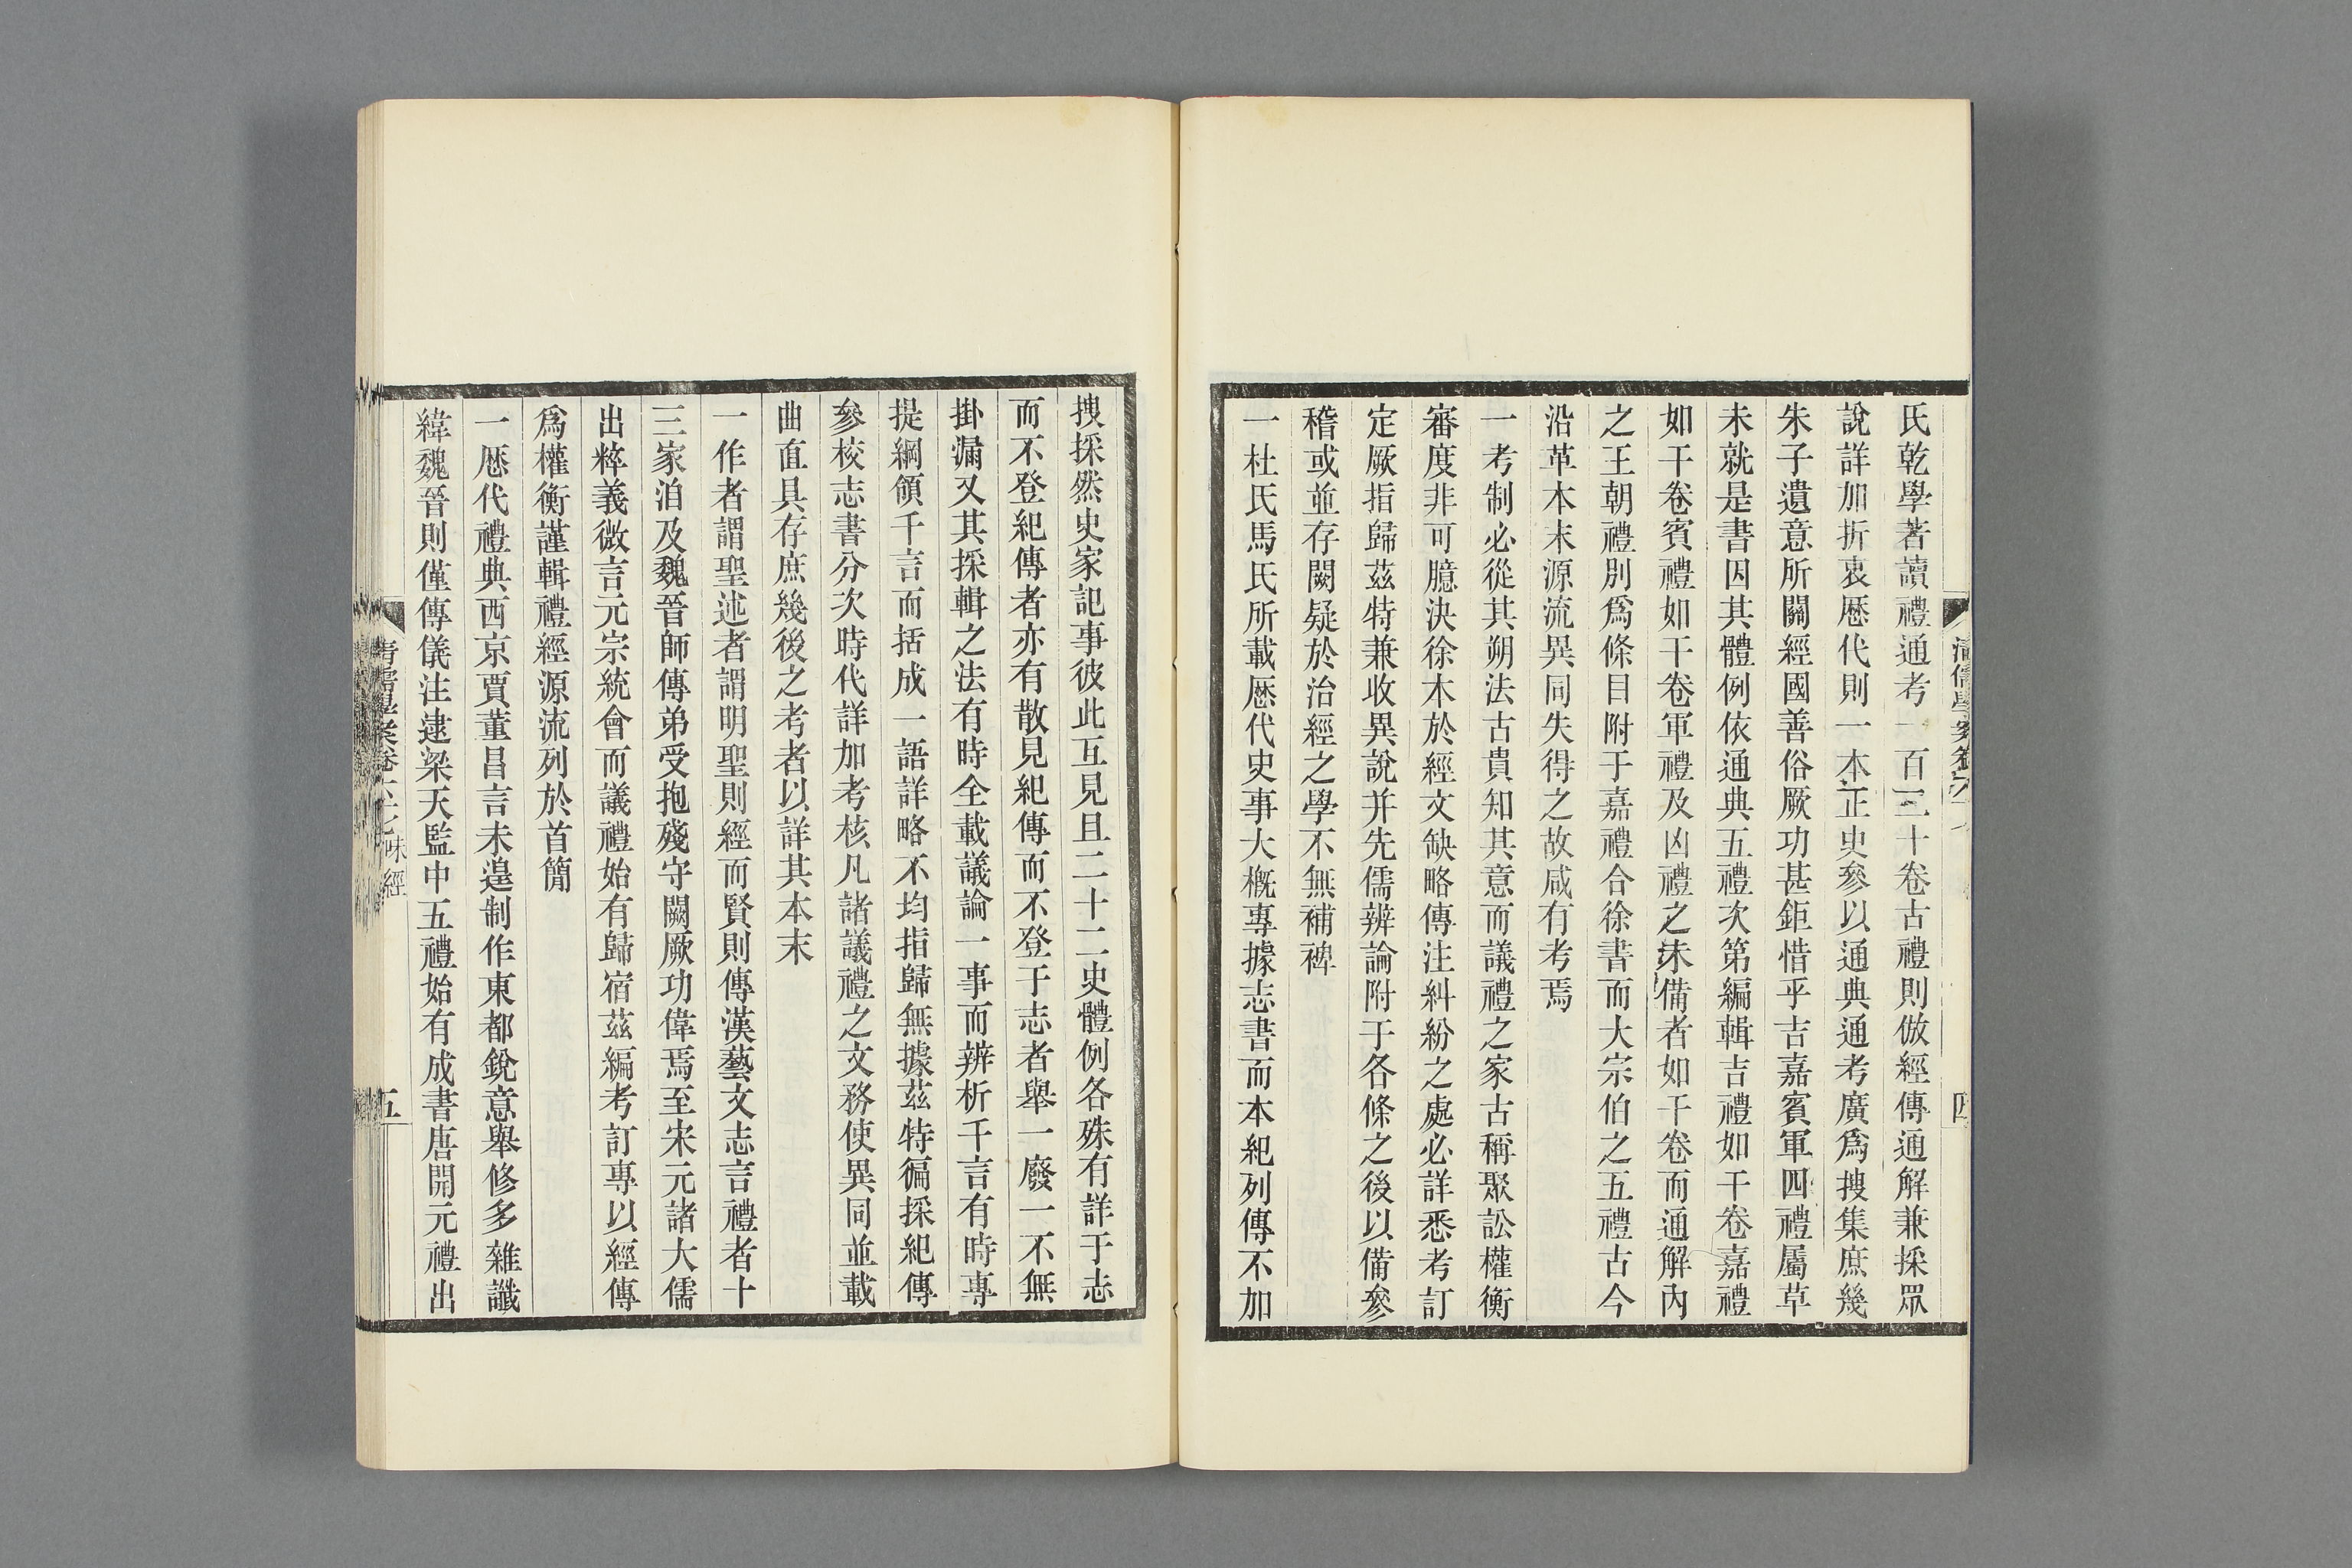 氏乾學著讀禮通考一百二十卷古禮則倣經傳通解兼採眾
說詳加折衷厯代則一本正史參以通典通考廣爲搜集庶幾
朱子遺意所關經國善俗厥功甚鉅惜乎吉嘉賓軍四禮屬草
未就是書因其體例依通典五禮次第編輯吉禮如干卷嘉禮
如干卷賓禮如干卷軍禮及凶禮之未備者如干卷而通解內
之王朝禮別爲條目附于嘉禮合徐書而大宗伯之五禮古今
沿革本末源流異同失得之故咸有考焉
一考制必從其朔法古貴知其意而議禮之家古稱聚訟權衡
審度非可臆決徐本於經文缺略傳注糾紛之處必詳悉考訂
定厥指歸茲特兼收異說并先儒辨論附于各條之後以備參
稽或並存闕疑於治經之學不無補裨
一杜氏馬氏所載厯代史事大槪專據志書而本紀列傳不加
搜採然史家記事彼此互見且二十二史體例各殊有詳于志
而不登紀傳者亦有散見紀傳而不登于志者舉一廢一不無
掛漏又其採輯之法有時全載議論一事而辨析千言有時專
提綱領千言而括成一語詳略不均指歸無據茲特徧採紀傳
參校志書分次時代詳加考核凡諸議禮之文務使異同並載
曲直具存庶幾後之考者以詳其本末
一作者謂聖述者謂明聖則經而賢則傳漢藝文志言禮者十
三家洎及魏晉師傳弟受抱殘守闕厥功偉焉至宋元諸大儒
出粹義微言元宗統會而議禮始有歸宿茲編考訂專以經傳
爲權衡謹輯禮經源流列於首簡
一厯代禮典西京賈董昌言未遑制作東都銳意舉修多雜讖
緯魏晉則僅傳儀注逮梁天監中五禮始有成書唐開元禮出
味經
五